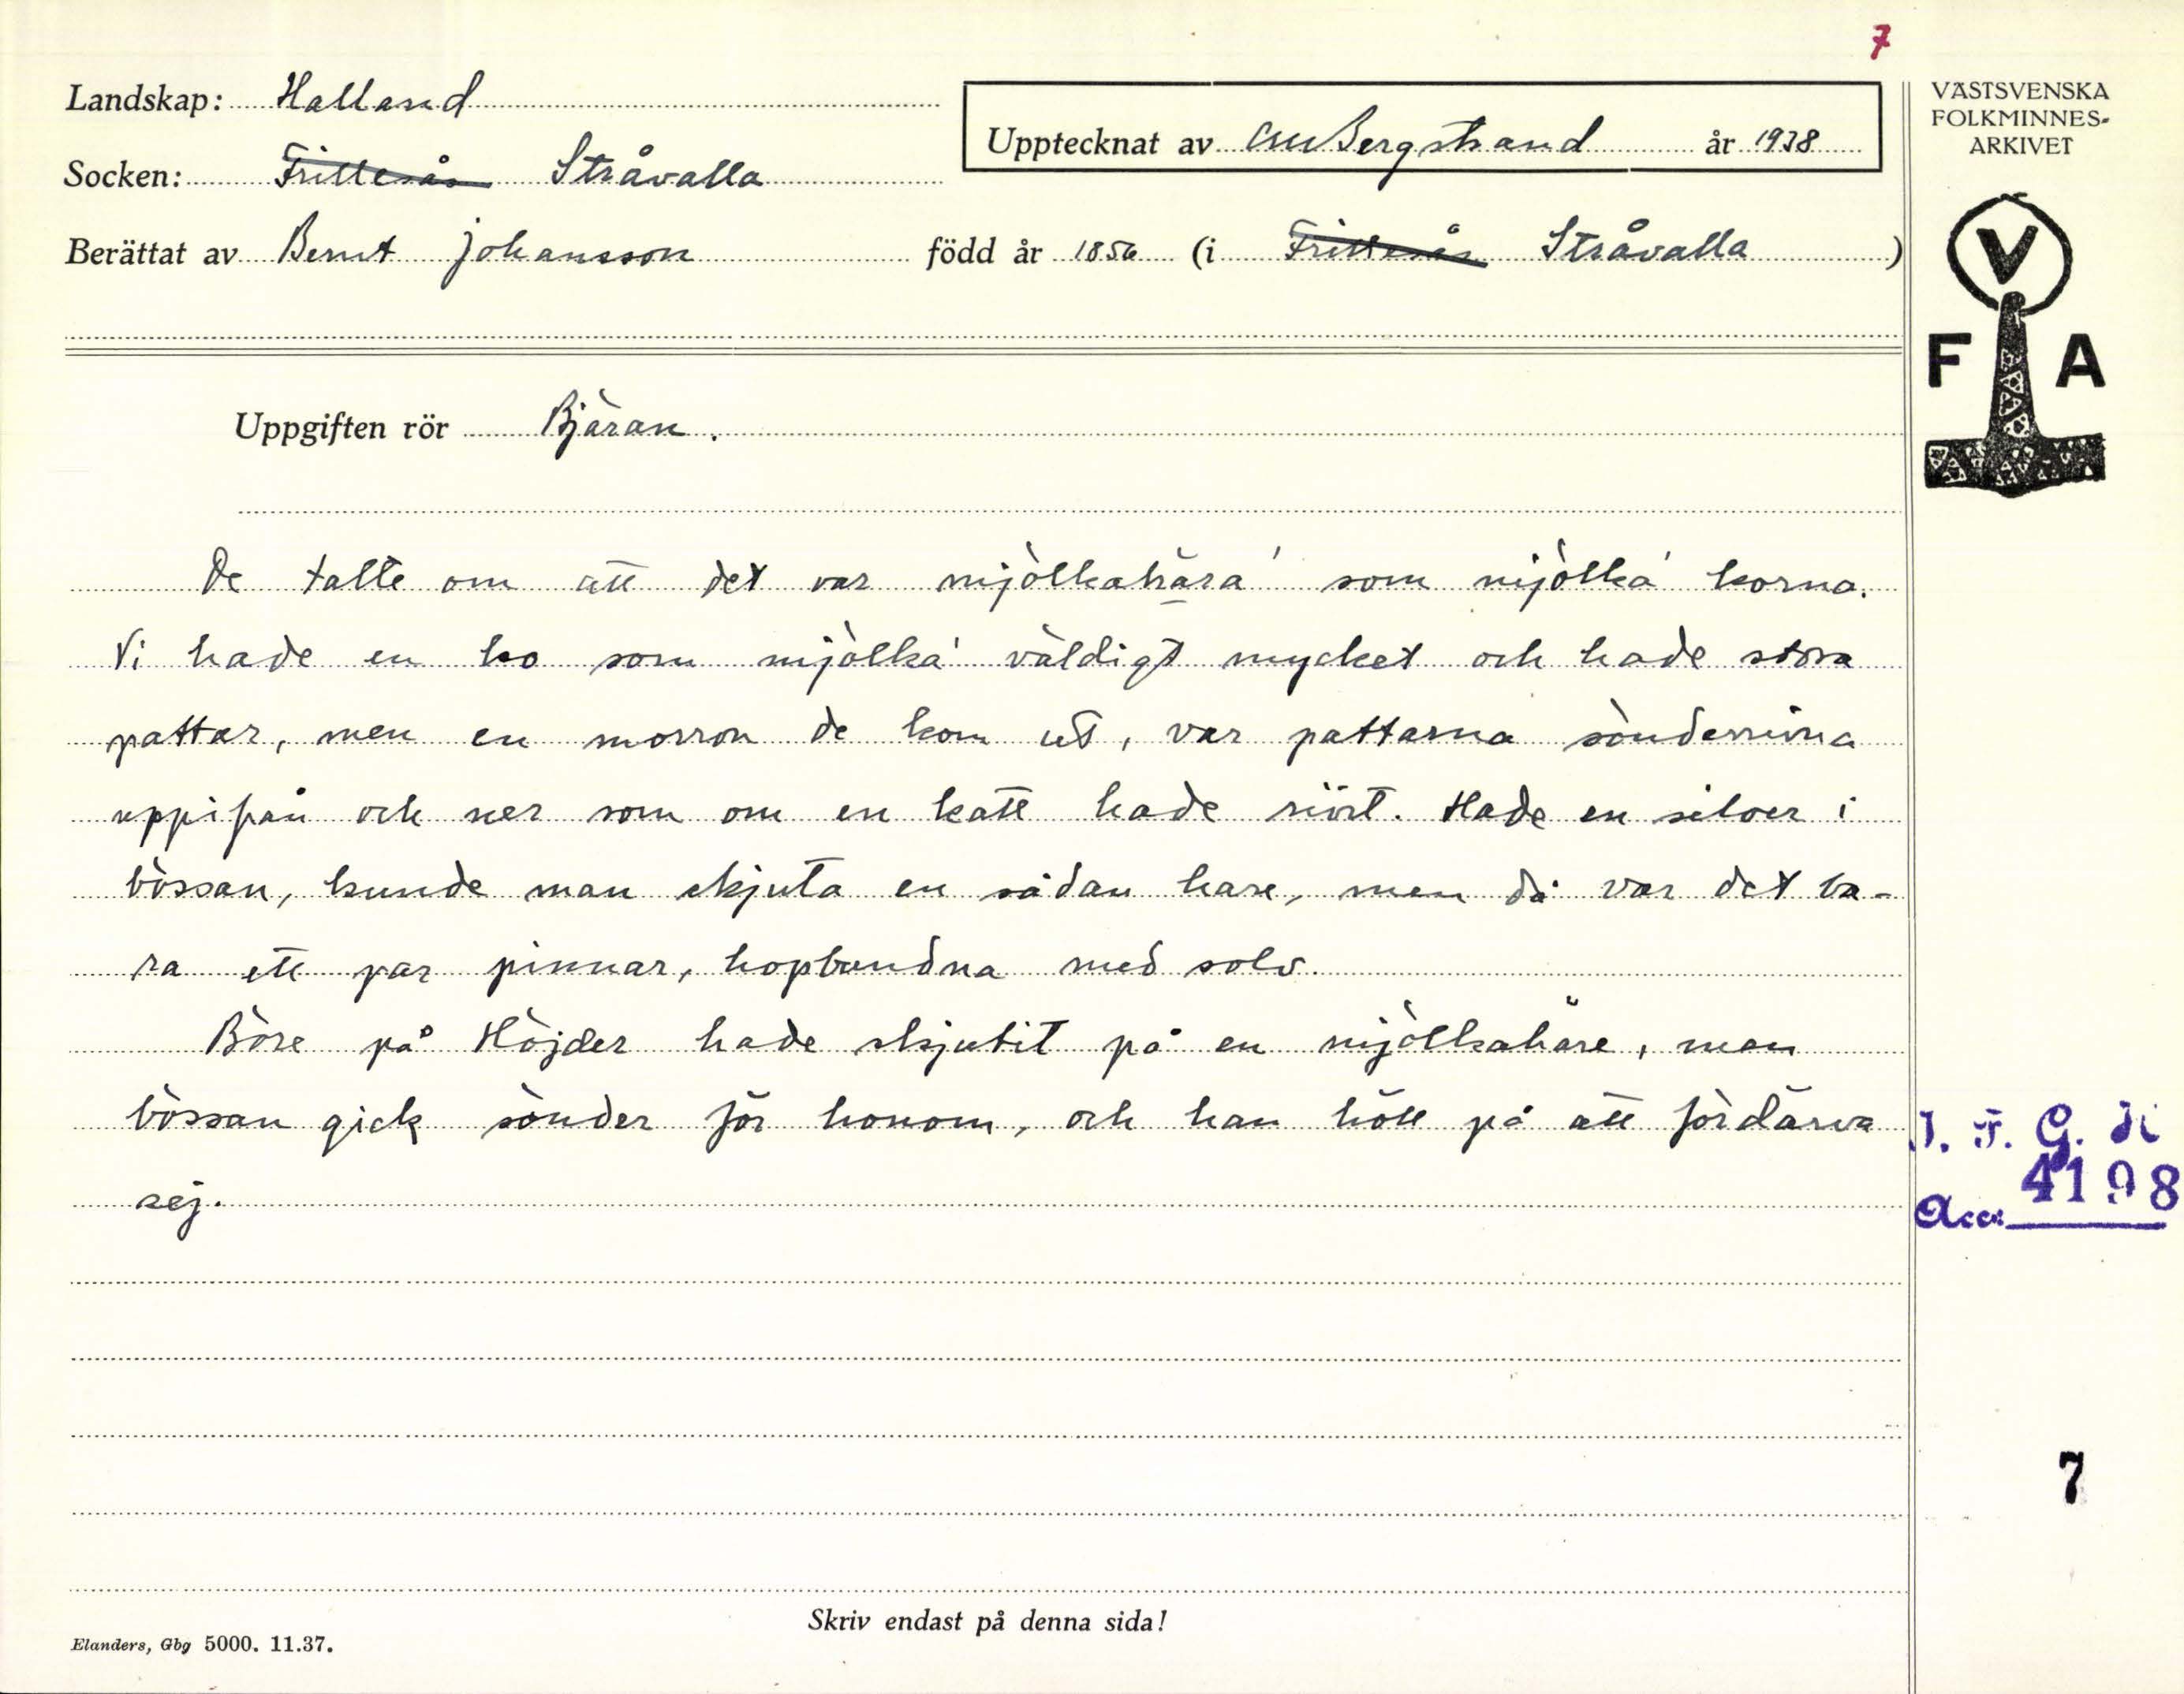 7
Landskap: Halland
Upptecknat av CM Bergstrand år 1938
Socken: Frillesås Stråvalla
Berättat av Bernt Johansson född år 1856 (i Frillesås Stråvalla)
VÄSTSVENSKA
FOLKMINNES-
ARKIVET
V
F A
Uppgiften rör Bjäran.
De talte om att det var mjölkahara' som mjölka' korna.
Vi hade en ko som mjölka' väldigt mycket och hade stora
pattar, men en morron de kom ut, var pattarna sönderrivna
uppifrån och ner som om en katt hade rivit. Hade en silver i
bössan, kunde man skjuta en sådan hare, men då var det ba-
ra ett par pinnar, hopbundna med solv.
Böre på Höjder hade skjutit på en mjölkahare, men
bössan gick sönder för honom, och han höll på att fördärva
sej.
I. F. G. H
4198
Acc:
7
Skriv endast på denna sida!
Elanders, Gbg 5000. 11.37.